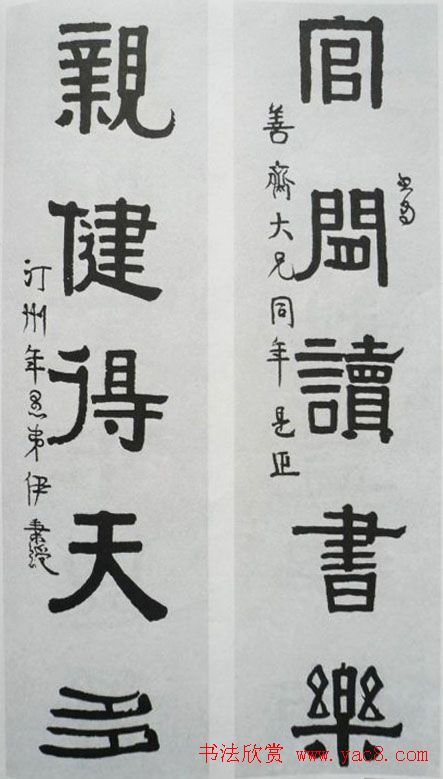 書為
官閒讀書樂
善齋大兄同年是正
親健得天多
汀州年愚弟伊秉綬
书法欣赏 www.yac8.com